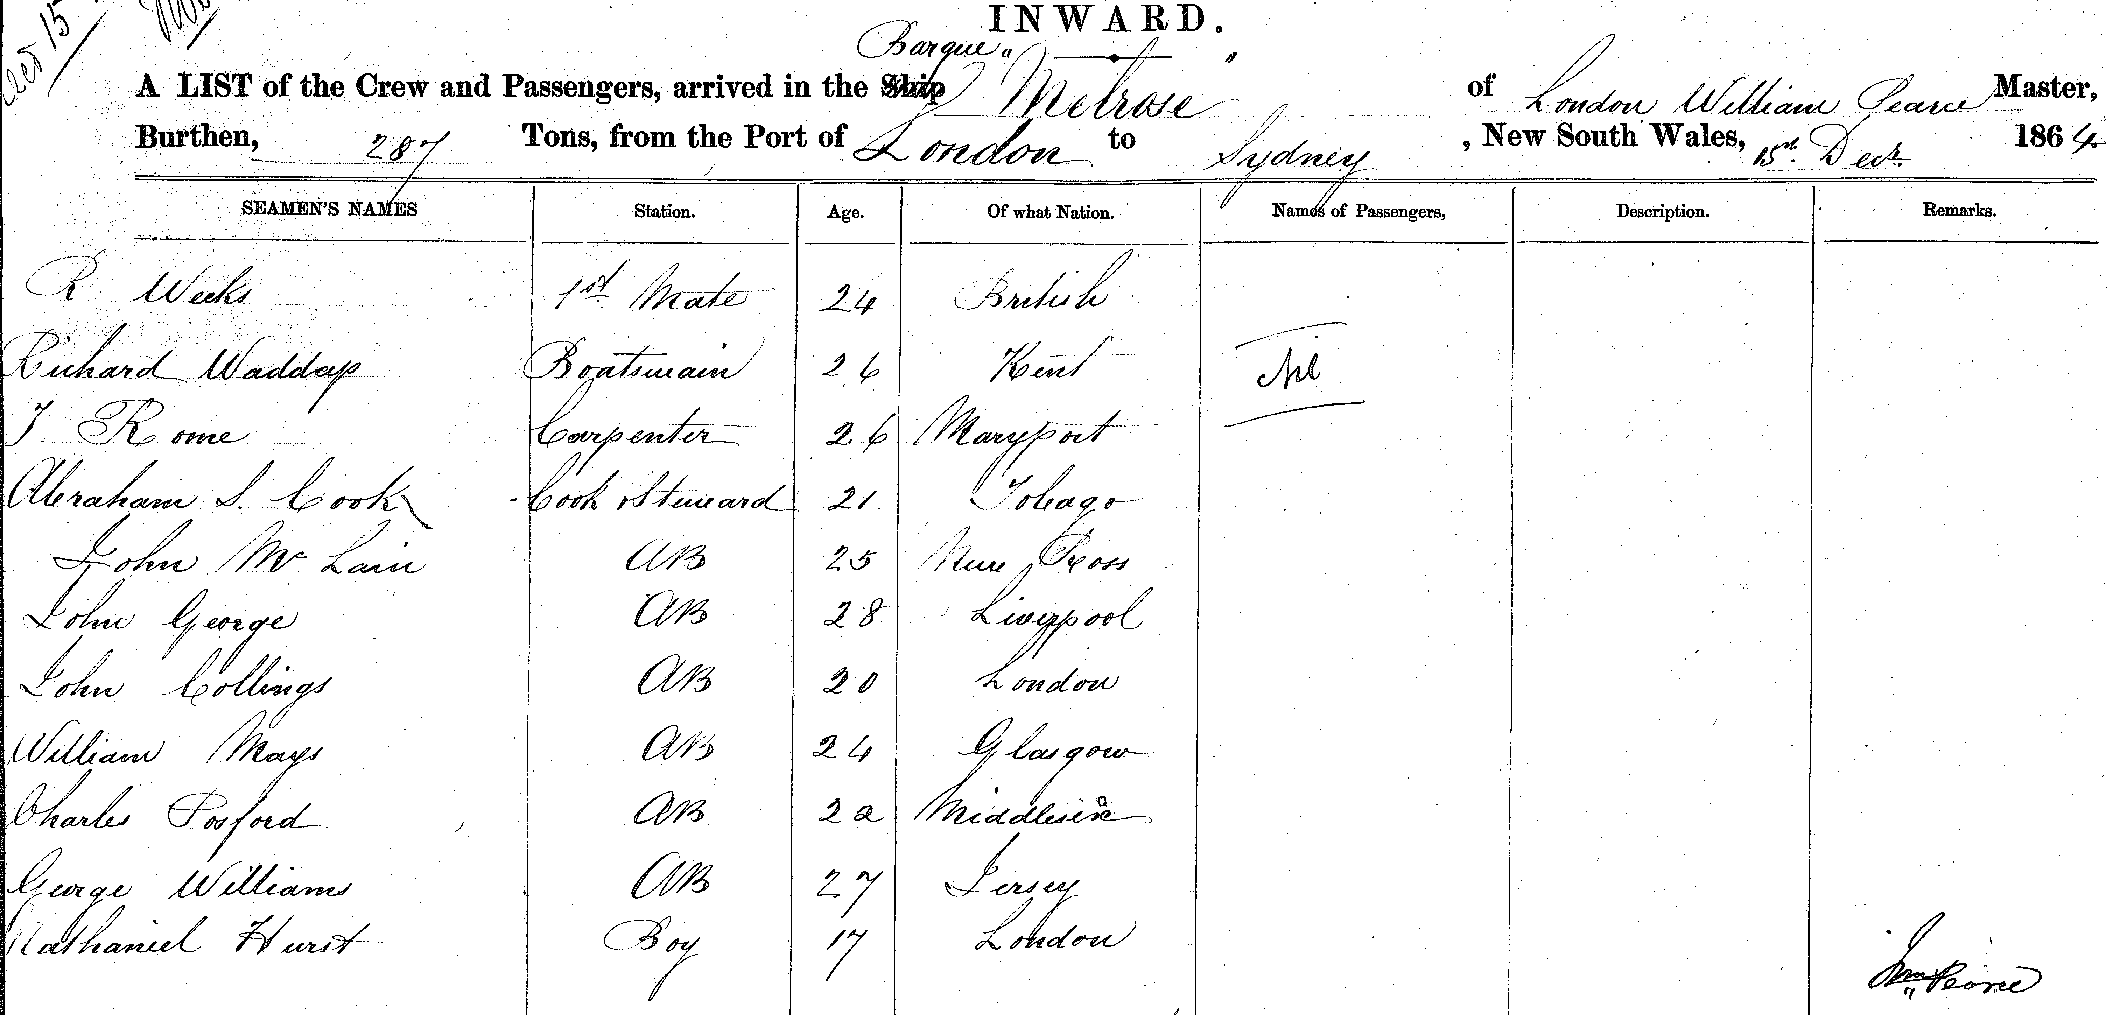 INWARD.
Barque "
A LIST of the Crew and Passengers, arrived in the Ship Melrose " of London William Pearce Master,
Burthen, 287 Tons, from the Port of London to Sydney, New South Wales, 15th Decr. 1864
SEAMEN'S NAMES Station. Age. Of what Nation. Names of Passengers, Description. Remarks.
R Weeks 1st Mate 24 British
Richard Waddap Boatswain 26 Kent Nil
J Rome Carpenter 26 Maryport
Abraham S. Cook Cook & Steward 21 Tobago
John Mc Lain AB 25 New Ross
John George AB 28 Liverpool
John Collings AB 20 London
William Mays AB 24 Glasgow
Charles Posford AB 22 Middlesex
George Williams AB 27 Jersey
Nathaniel Hurst Boy 17 London
Wm Pearce